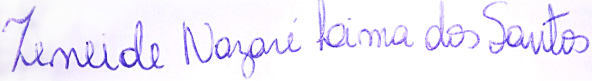 Zeneide Nazaré Laima dos Santos